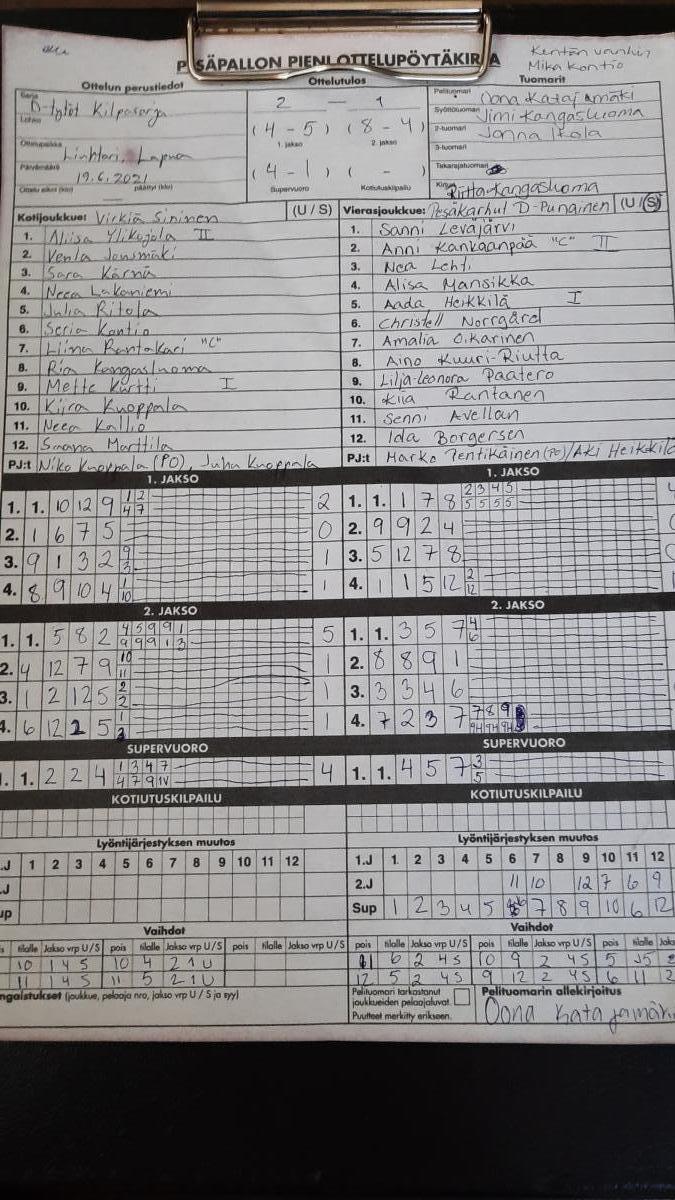 Kentän vanhin
PESÄPALLON PIENI OTTELUPÖYTÄKIRJA
Mika Kontio
Ottelun perustiedot
Ottelutulos
Tuomarit
Sarja
D-tytöt Kilpasarja
2 — 1
Pelituomari
Oona Katajamäki
Lohko
(4 - 5) (8 - 4)
Syöttötuomari
Jimi Kangasluoma
Ottelupaikka
Linhtari, Lapua
1. jakso 2. jakso
2-tuomari
Jonna Ikola
3-tuomari
Päivämäärä
19.6.2021
(4 - 1) ( - )
Takarajatuomari
Ottelu alkoi (klo) päättyi (klo)
Supervuoro Kotiutuskilpailu
Kirjuri
Riitta Kangasluoma
Kotijoukkue: Virkiä Sininen (U / S)
Vierasjoukkue: Pesäkarhut D-Punainen (U / S)
1. Aliisa Ylikojola II
1. Sanni Leväjärvi
2. Venla Jonsmäki
2. Anni Kankaanpää "C" II
3. Sara Kärnä
3. Nea Lehti
4. Neea Lakaniemi
4. Alisa Mansikka
5. Julia Ritola
5. Aada Heikkilä I
6. Seria Kontio
6. Christell Norrgård
7. Liina Rantakari "C"
7. Amalia Oikarinen
8. Ria Kangasluoma
8. Aino Kuuri-Riutta
9. Mette Kurtti I
9. Lilja-Leonora Paatero
10. Kiira Knuppala
10. Kiia Rantanen
11. Neea Kallio
11. Senni Avellan
12. Smana Marttila
12. Ida Borgersen
PJ:t Niko Knuppala (PO), Juha Knuppala
PJ:t Marko Tentikäinen (PO)/Aki Heikkilä
1. JAKSO
1. JAKSO
1. 1. 10 12 9 1 2 2
4 7
1. 1. 1 7 8 2 3 4 5
5 5 5 5
2. 1 6 7 5 0
2. 9 9 2 4
3. 9 1 3 2 9 1
3
3. 5 12 7 8
4. 8 9 10 4 1 1
10
4. 1 1 5 12 2
12
2. JAKSO
2. JAKSO
1. 1. 5 8 2 4 5 9 9 1 5
9 9 9 1 3
1. 1. 3 5 7 4
6
2. 4 12 7 9 10 1
11
2. 8 8 9 1
3. 1 2 12 5 2 1
2
3. 3 3 4 6
4. 6 12 2 5 1 1
3
4. 7 2 3 7 7 8 9
SUPERVUORO
SUPERVUORO
1. 1. 2 2 4 1 3 4 7 4
4 7 9
1. 1. 4 5 7 3
5
KOTIUTUSKILPAILU
KOTIUTUSKILPAILU
Lyöntijärjestyksen muutos
Lyöntijärjestyksen muutos
.J 1 2 3 4 5 6 7 8 9 10 11 12
1.J 1. 2 3 4 5 6 7 8 9 10 11 12
.J
2.J 11 10 12 7 6 9
up
Sup 1 2 3 4 5 7 8 9 10 6 12
Vaihdot
Vaihdot
is tilalle Jakso vrp U/S pois tilalle Jakso vrp U/S pois tilalle Jakso vrp U/S
pois tilalle Jakso vrp U/S pois tilalle Jakso vrp U/S pois tilalle Jaks
10 1 4 S 10 4 2 1 U
6 2 4 S 10 9 2 4 S 5
11 1 4 S 11 5 2 1 U
12 5 2 4 S 9 12 2 4 S 6 11 2
ngaistukset (joukkue, pelaaja nro, jakso vrp U / S ja syy)
Pelituomari tarkastanut
joukkueiden pelaajaluvat.
Puutteet merkitty erikseen.
Pelituomarin allekirjoitus
Oona Katajamäki